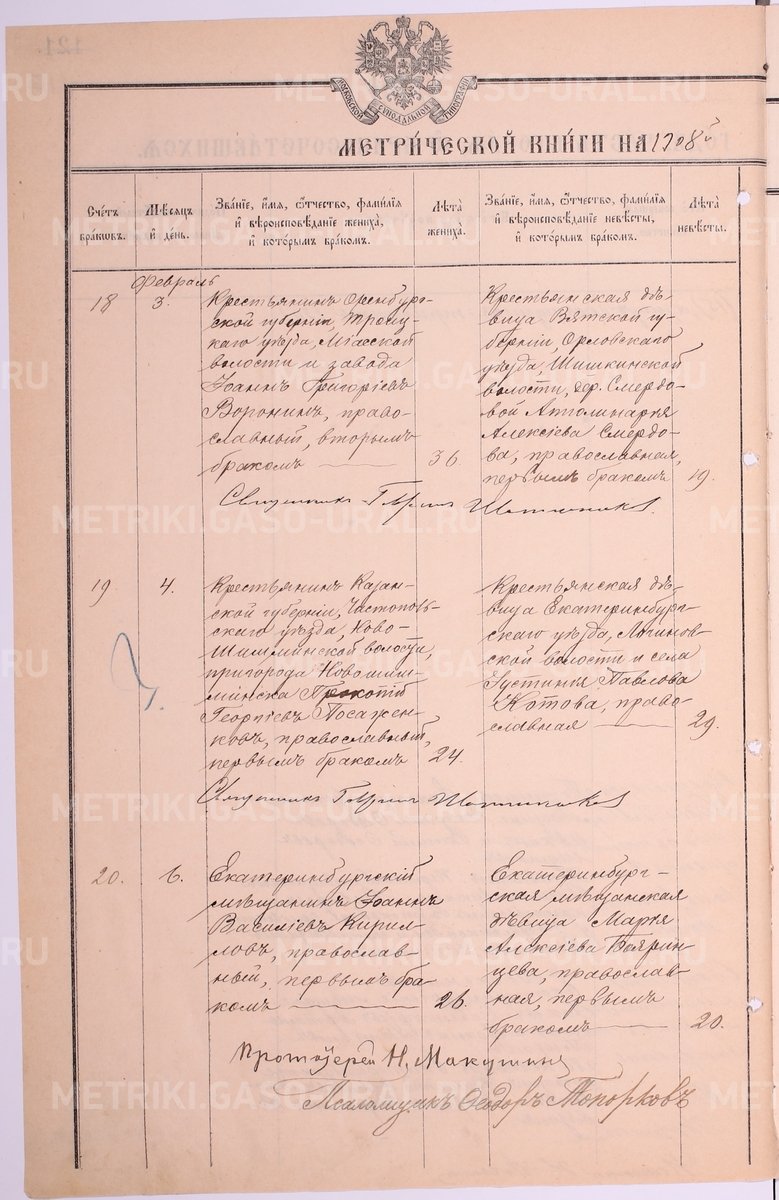 МОСКОВСКОЙ СѴНОДАЛЬНОЙ ТИПОГРАФІИ
МЕТРИ́ЧЕСКОЙ КНИ́ГИ НА 1908й
Сче́тъ бра́кѡвъ.
Мѣ́сяцъ и҆ де́нь.
Зва́нїе, и҆́мя, ѻ҆́тчество, фами́лїя
и҆ вѣроисповѣ́данїе жениха̀,
и҆ кото́рымъ бра́комъ.
Лѣта̀ жениха̀.
Зва́нїе, и҆́мя, ѻ҆́тчество, фами́лїя
и҆ вѣроисповѣ́данїе невѣ́сты,
и҆ кото́рымъ бра́комъ.
Лѣта̀ невѣ́сты.
Февраль
18
3.
Крестьянинъ Оренбург-
ской губерніи, Троиц-
каго уѣзда, Міасской
волости и завода
Іоаннъ Григоріевъ
Воронинъ, право-
славный, вторымъ
бракомъ
36.
Крестьянская дѣ-
вица Вятской гу-
берніи, Орловскаго
уѣзда, Шишкинской
волости, дер. Смердо-
вой Апполинарія
Алексіева Смердо-
ва, православная,
первымъ бракомъ
19.
Священникъ
19
4.
Крестьянинъ Казан-
ской губерніи, Чистополь-
скаго уѣзда, Ново-
Шишминской волости,
пригорода Новошиш-
минска Прокопій
Георгіевъ Посажен-
ковъ, православный,
первымъ бракомъ
24.
Крестьянская дѣ-
вица Екатеринбург-
скаго уѣзда, Логинов-
ской волости и села
Іустинія Павлова
Котова, право-
славная
29.
Священникъ
20.
6.
Екатеринбургскій
мѣщанинъ Іоаннъ
Василіевъ Кирил-
ловъ, православ-
ный, первымъ бра-
комъ
26.
Екатеринбург-
ская мѣщанская
дѣвица Марія
Алексіева Боярин-
цева, православ-
ная, первымъ
бракомъ
20.
Протоіерей Н. Макушинъ
Псаломщикъ Ѳеодоръ Топорковъ
METRIKI.GASO-URAL.RU